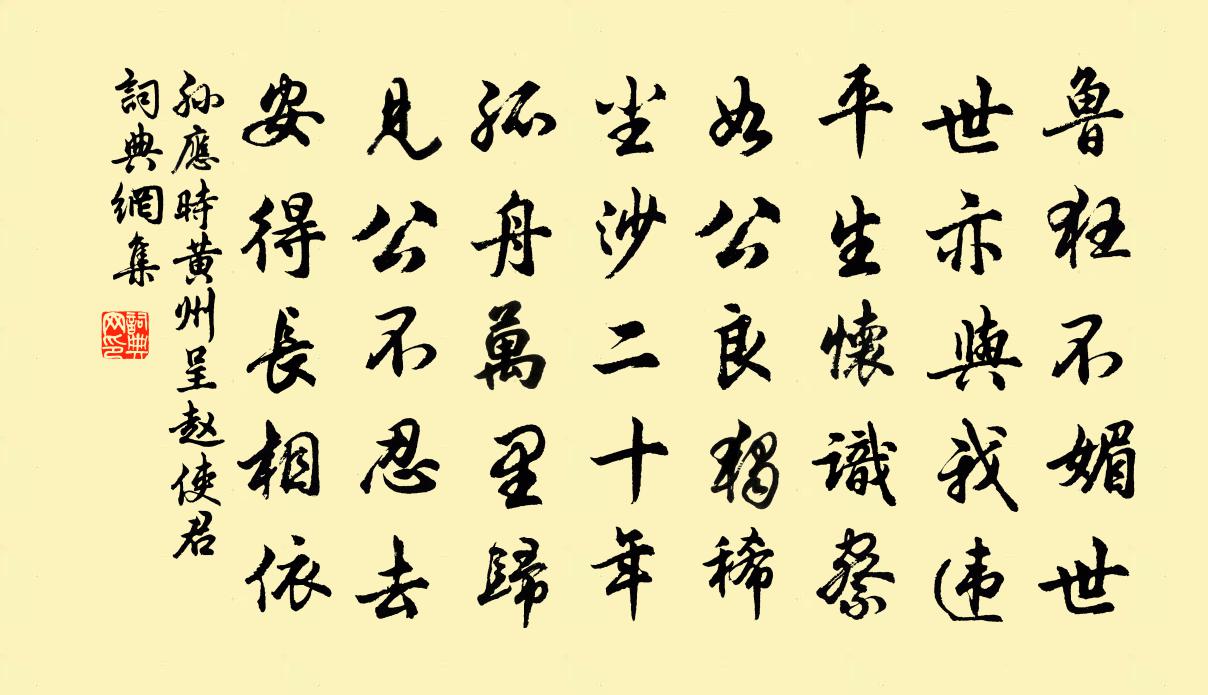 魯狂不媚世
世亦與我違
平生懷識察
如公良獨稀
尘沙二十年
孤舟萬里歸
見公不忍去
安得長相依
孙應時黄州呈赵使君
詞典網集
詞典网印